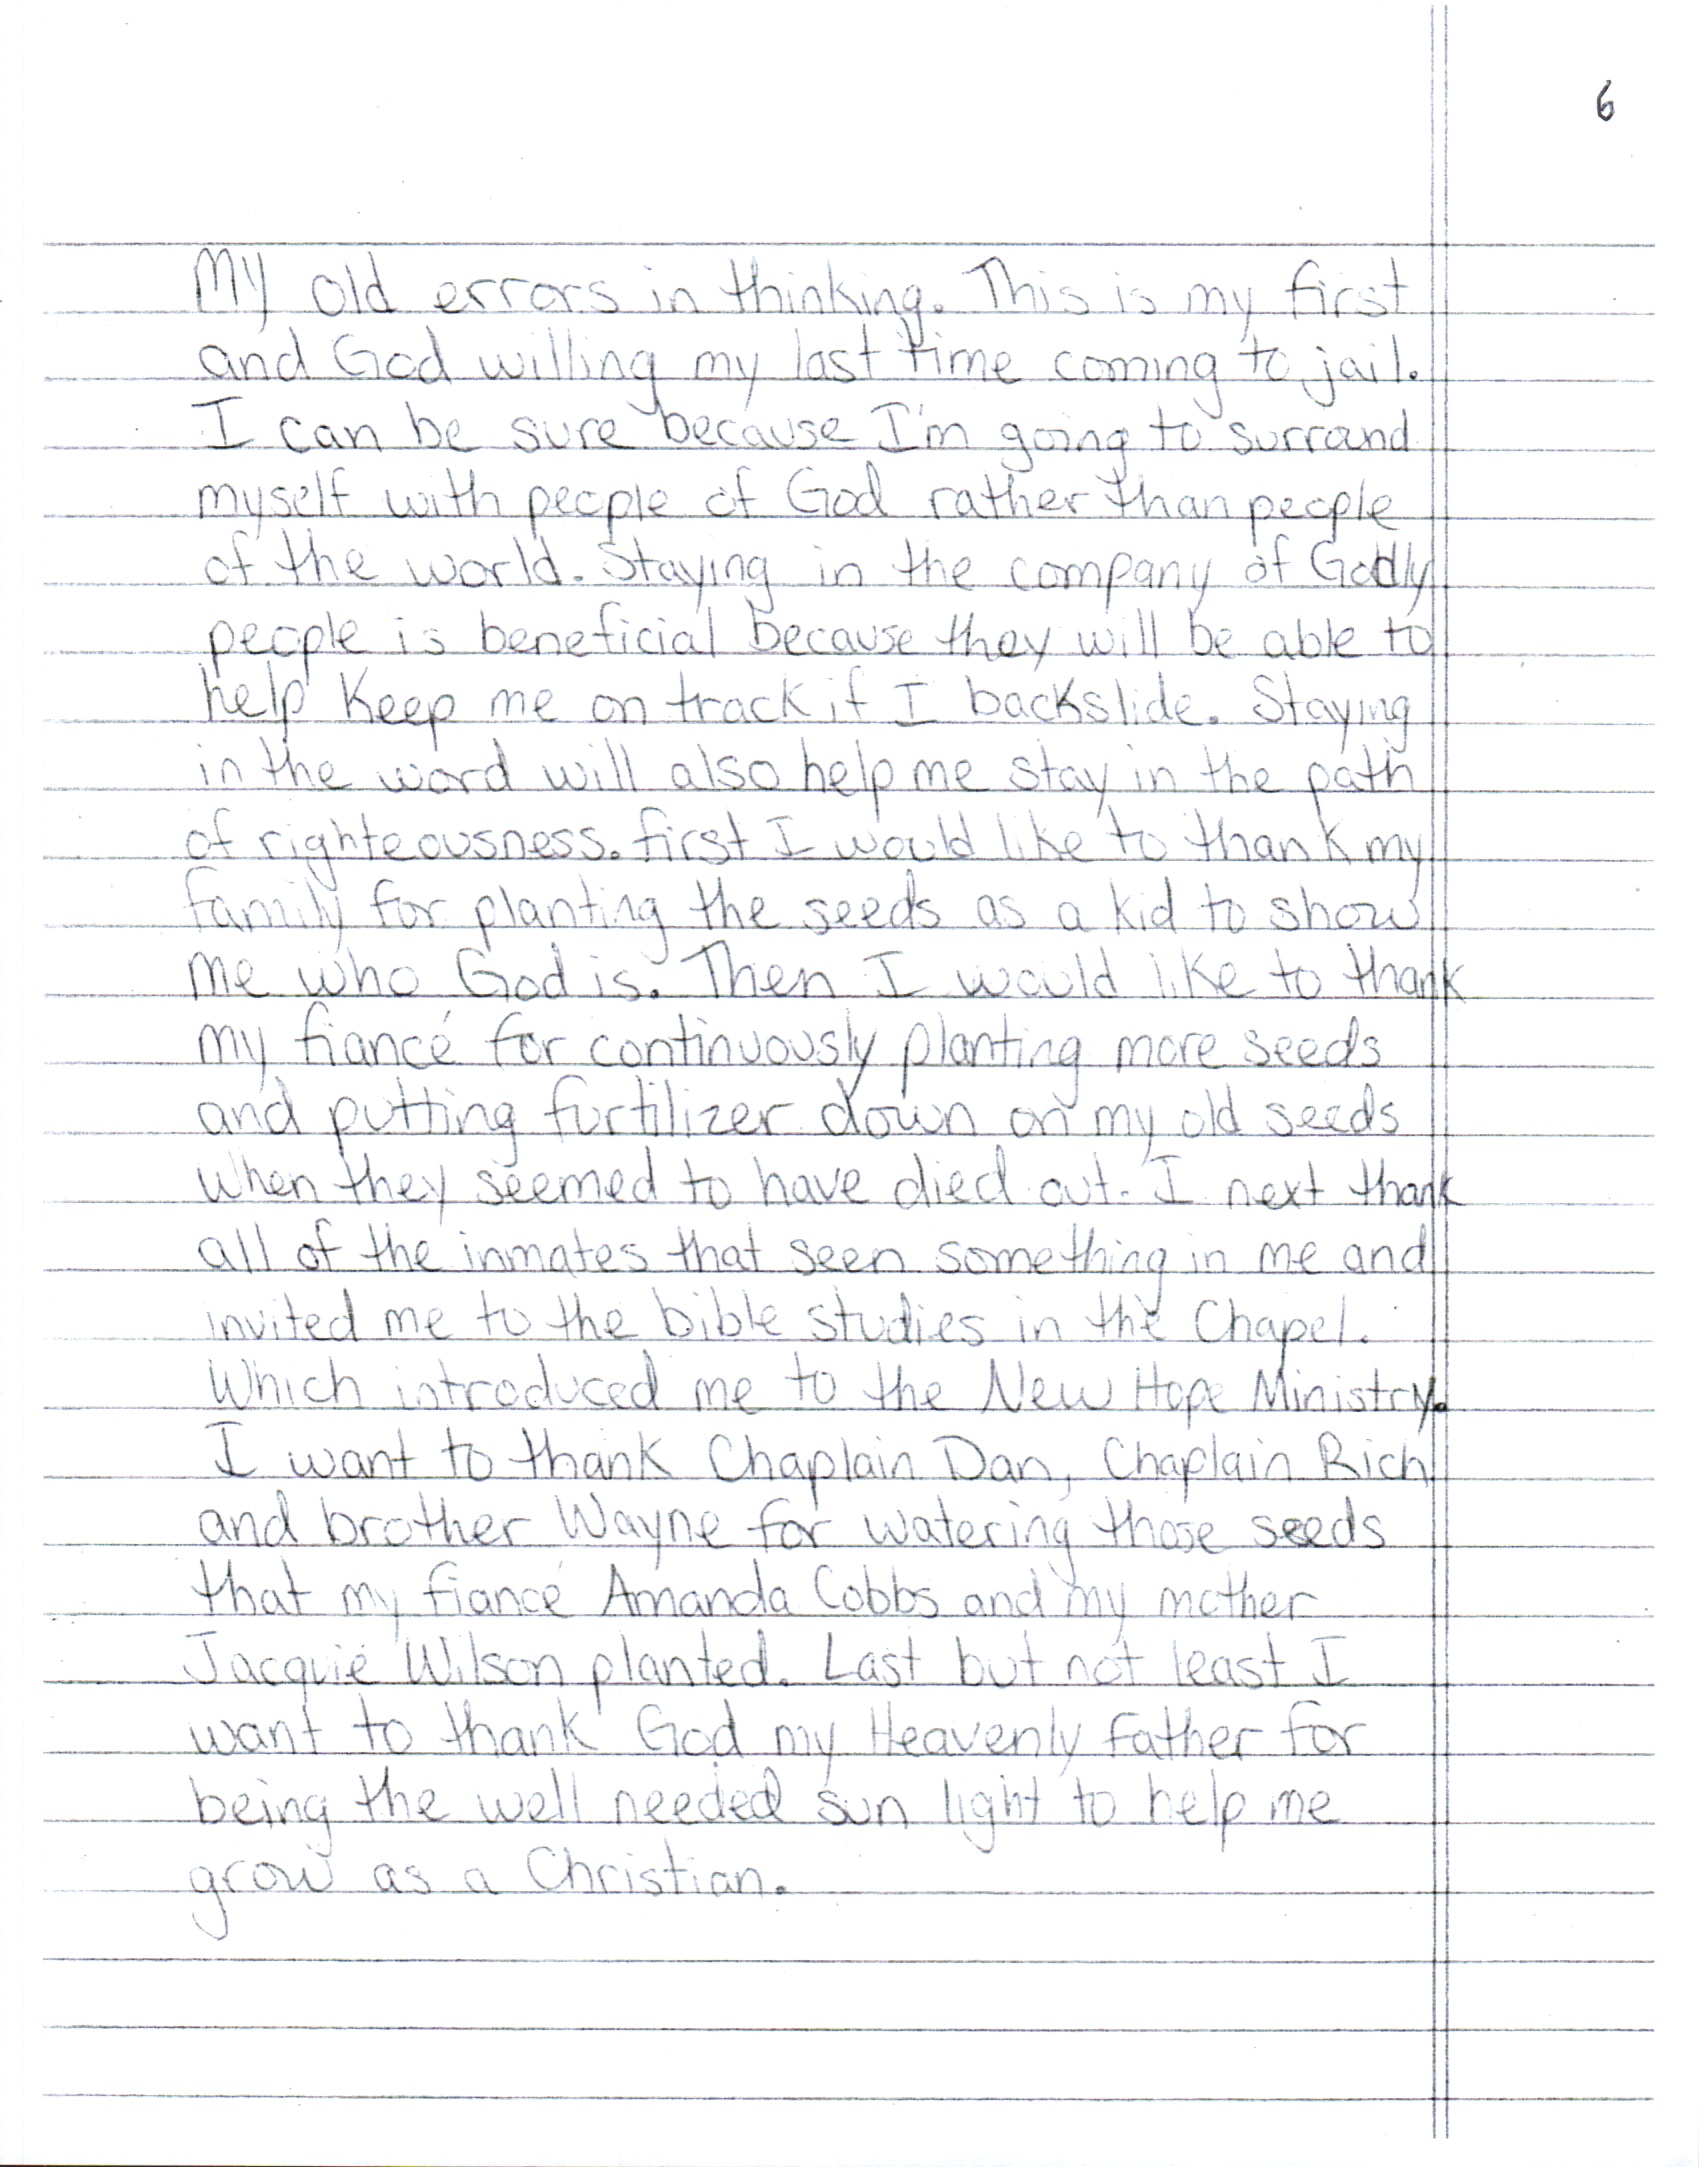 6
My old errors in thinking. This is my first
and God willing my last time coming to jail.
I can be sure because I'm going to surround
myself with people of God rather than people
of the world. Staying in the company of Godly
people is beneficial because they will be able to
help keep me on track if I backslide. Staying
in the word will also help me stay in the path
of righteousness. first I would like to thank my
family for planting the seeds as a kid to show
me who God is. Then I would like to thank
my fiancé for continuously planting more seeds
and putting furtilizer down on my old seeds
when they seemed to have died out. I next thank
all of the inmates that seen something in me and
invited me to the bible studies in the Chapel.
Which introduced me to the New Hope Ministry.
I want to thank Chaplain Dan, Chaplain Rich
and brother Wayne for watering those seeds
that my fiancé Amanda Cobbs and my mother
Jacquie Wilson planted. Last but not least I
want to thank God my Heavenly Father for
being the well needed sun light to help me
grow as a Christian.